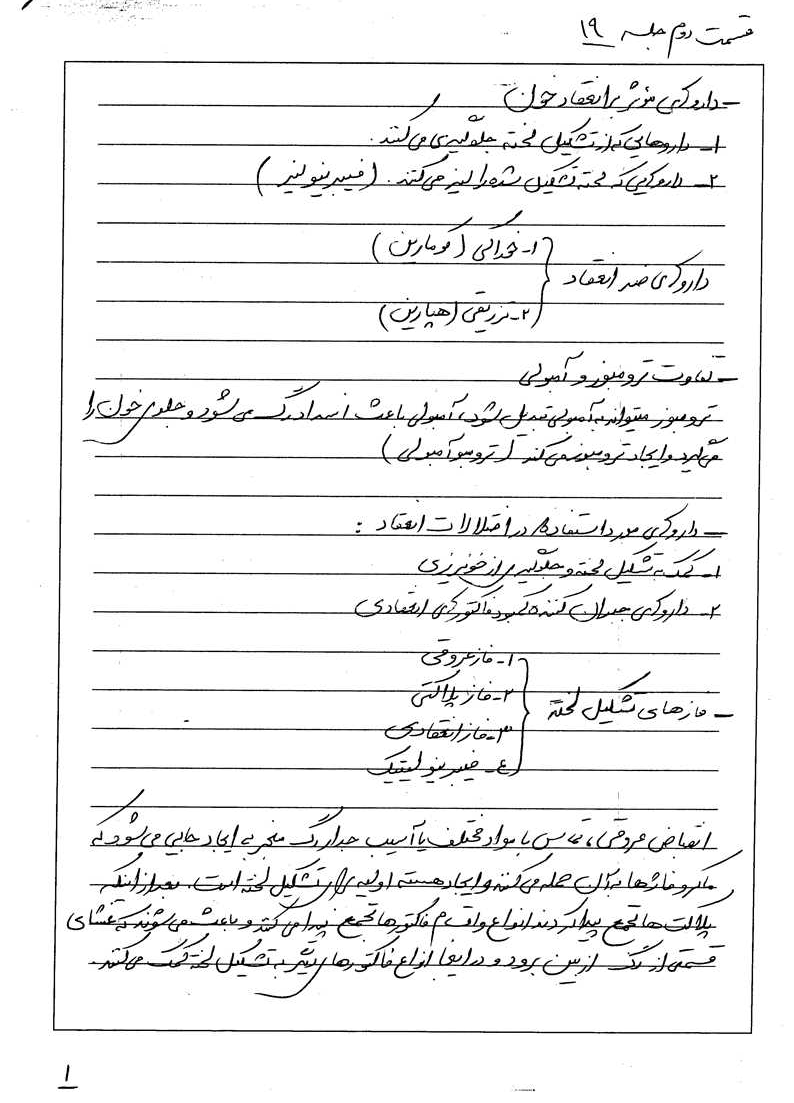 قسمت دوم جلسه ۱۹
- داروهای موثر بر انعقاد خون
۱- داروهایی که از تشکیل لخته جلوگیری می‌کنند.
۲- داروهایی که لخته تشکیل شده را لیز می‌کنند. (فیبرینولیز)
داروهای ضد انعقاد
۱- خوراکی (کومارین)
۲- تزریقی (هپارین)
- تفاوت ترومبوز و آمبولی
ترومبوز میتواند به آمبولی تبدیل شود، آمبولی باعث انسداد رگ می‌شود و جلوی خون را
می‌گیرد و ایجاد ترومبوز می‌کند (ترومبوآمبولی)
- داروهای مورد استفاده در اختلالات انعقاد :
۱- کمک به تشکیل لخته و جلوگیری از خونریزی
۲- داروهای جبران کننده کمبود فاکتورهای انعقادی
- فازهای تشکیل لخته
۱- فاز عروقی
۲- فاز پلاکتی
۳- فاز انعقادی
۴- فیبرینولیتیک
انقباض عروقی، تماس با مواد مختلف یا آسیب جدار رگ منجر به ایجاد جایی می‌شود که
ماکروفاژها به آن حمله می‌کنند و ایجاد هسته اولیه برای تشکیل لخته است. بعد از اینکه
پلاکت‌ها تجمع پیدا کردند انواع و اقسام فاکتورها تجمع پیدا می‌کند و باعث می‌شوند که غشای
قسمتی از رگ از بین برود و در اینجا انواع فاکتورهای بیشتر به تشکیل لخته کمک می‌کنند.
۱